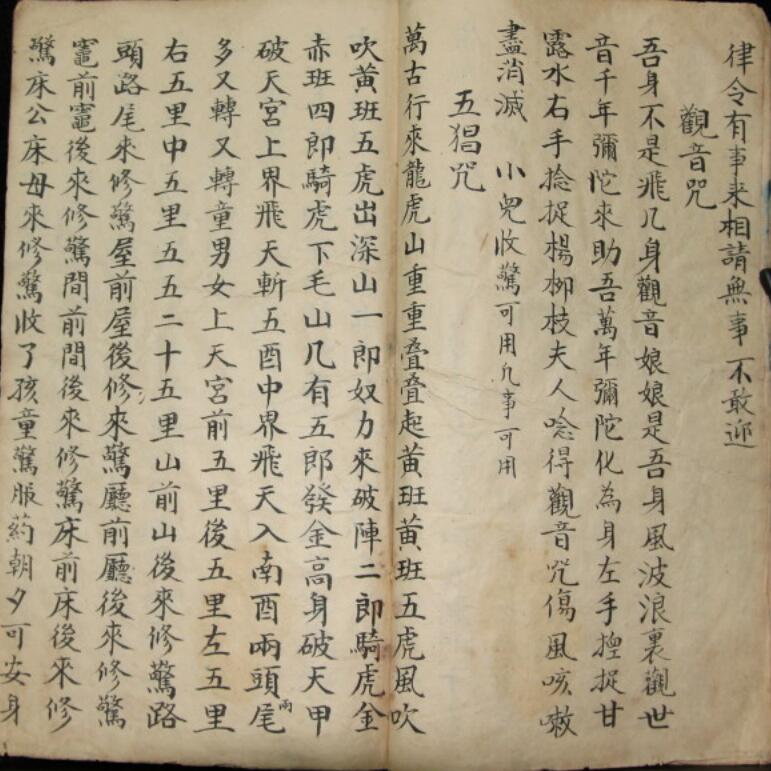 律令有事来相請無事不敢迎
觀音咒
吾身不是飛凡身觀音娘娘是吾身風波浪裏觀世
音千年彌陀來助吾萬年彌陀化為身左手捏捉甘
露水右手捻捉楊柳枝夫人唸得觀音咒傷風咳嗽
盡消滅 小兒收驚可用凢事可用
五猖咒
萬古行來龍虎山重重叠叠起黃班黃班五虎風吹
吹黃班五虎出深山一郎奴力來破陣二郎騎虎金
赤班四郎騎虎下毛山凡有五郎發金高身破天甲
破天宮上界飛天斬五酉中界飛天入南酉兩頭尾
兩
多又轉又轉童男女上天宮前五里後五里左五里
右五里中五里五五二十五里山前山後來修驚路
頭路尾來修驚屋前屋後修來驚廳前廳後來修驚
竈前竈後來修驚間前間後來修驚床前床後來修
驚床公床母來修驚收了孩童驚脹葯朝夕可安身